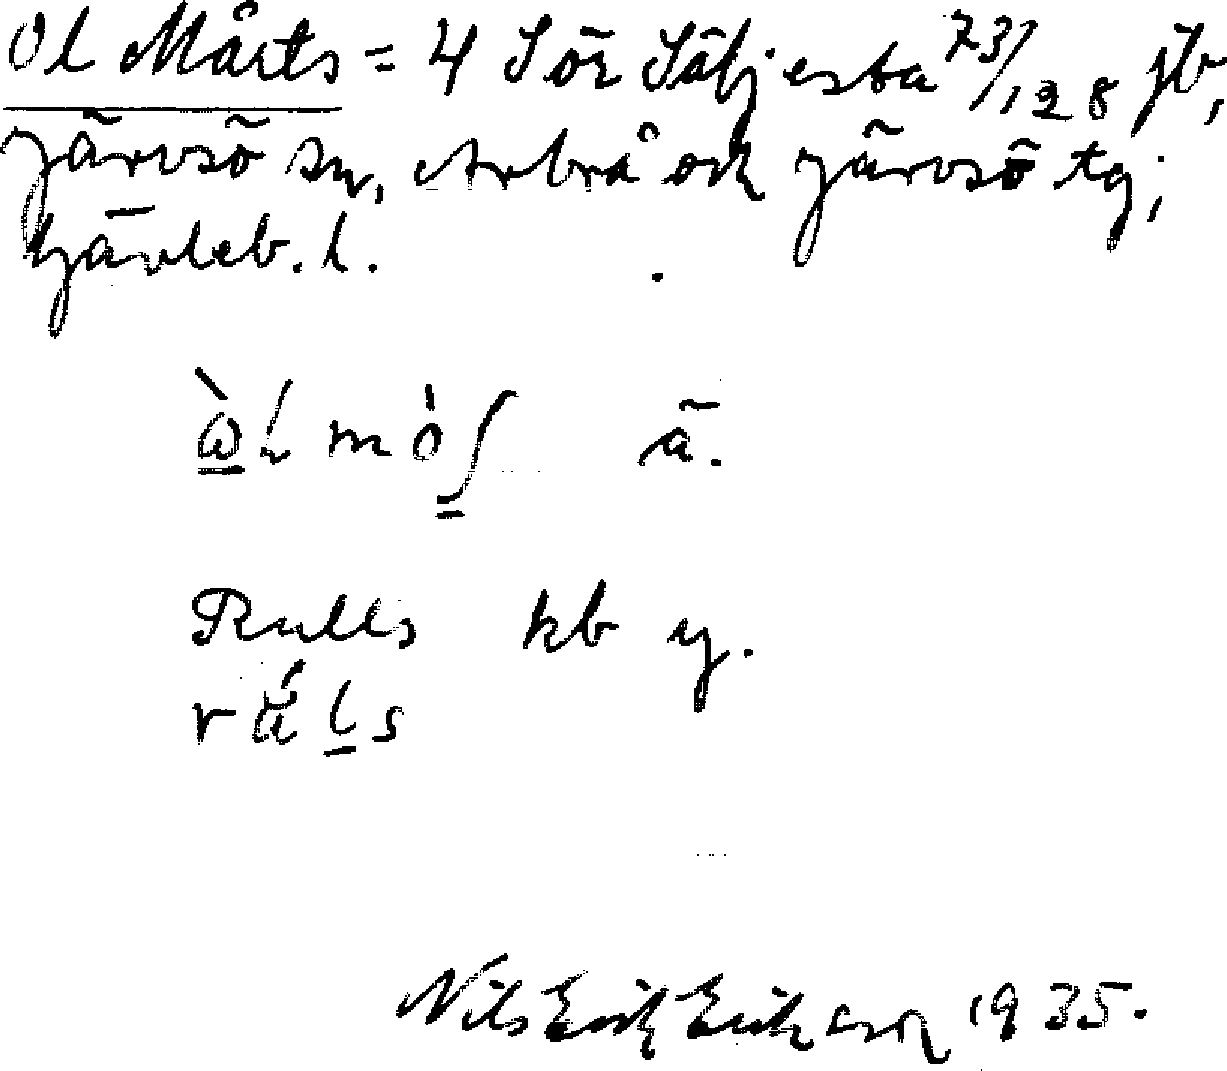 Ol Mårts = 4 Sör Säljesta 73/128 jb,
Järvsö sn, Arbrå och Järvsö tg,
Gävleb. l.
ä.
Rulls kb y.
Nils Erik Erikson 1935.